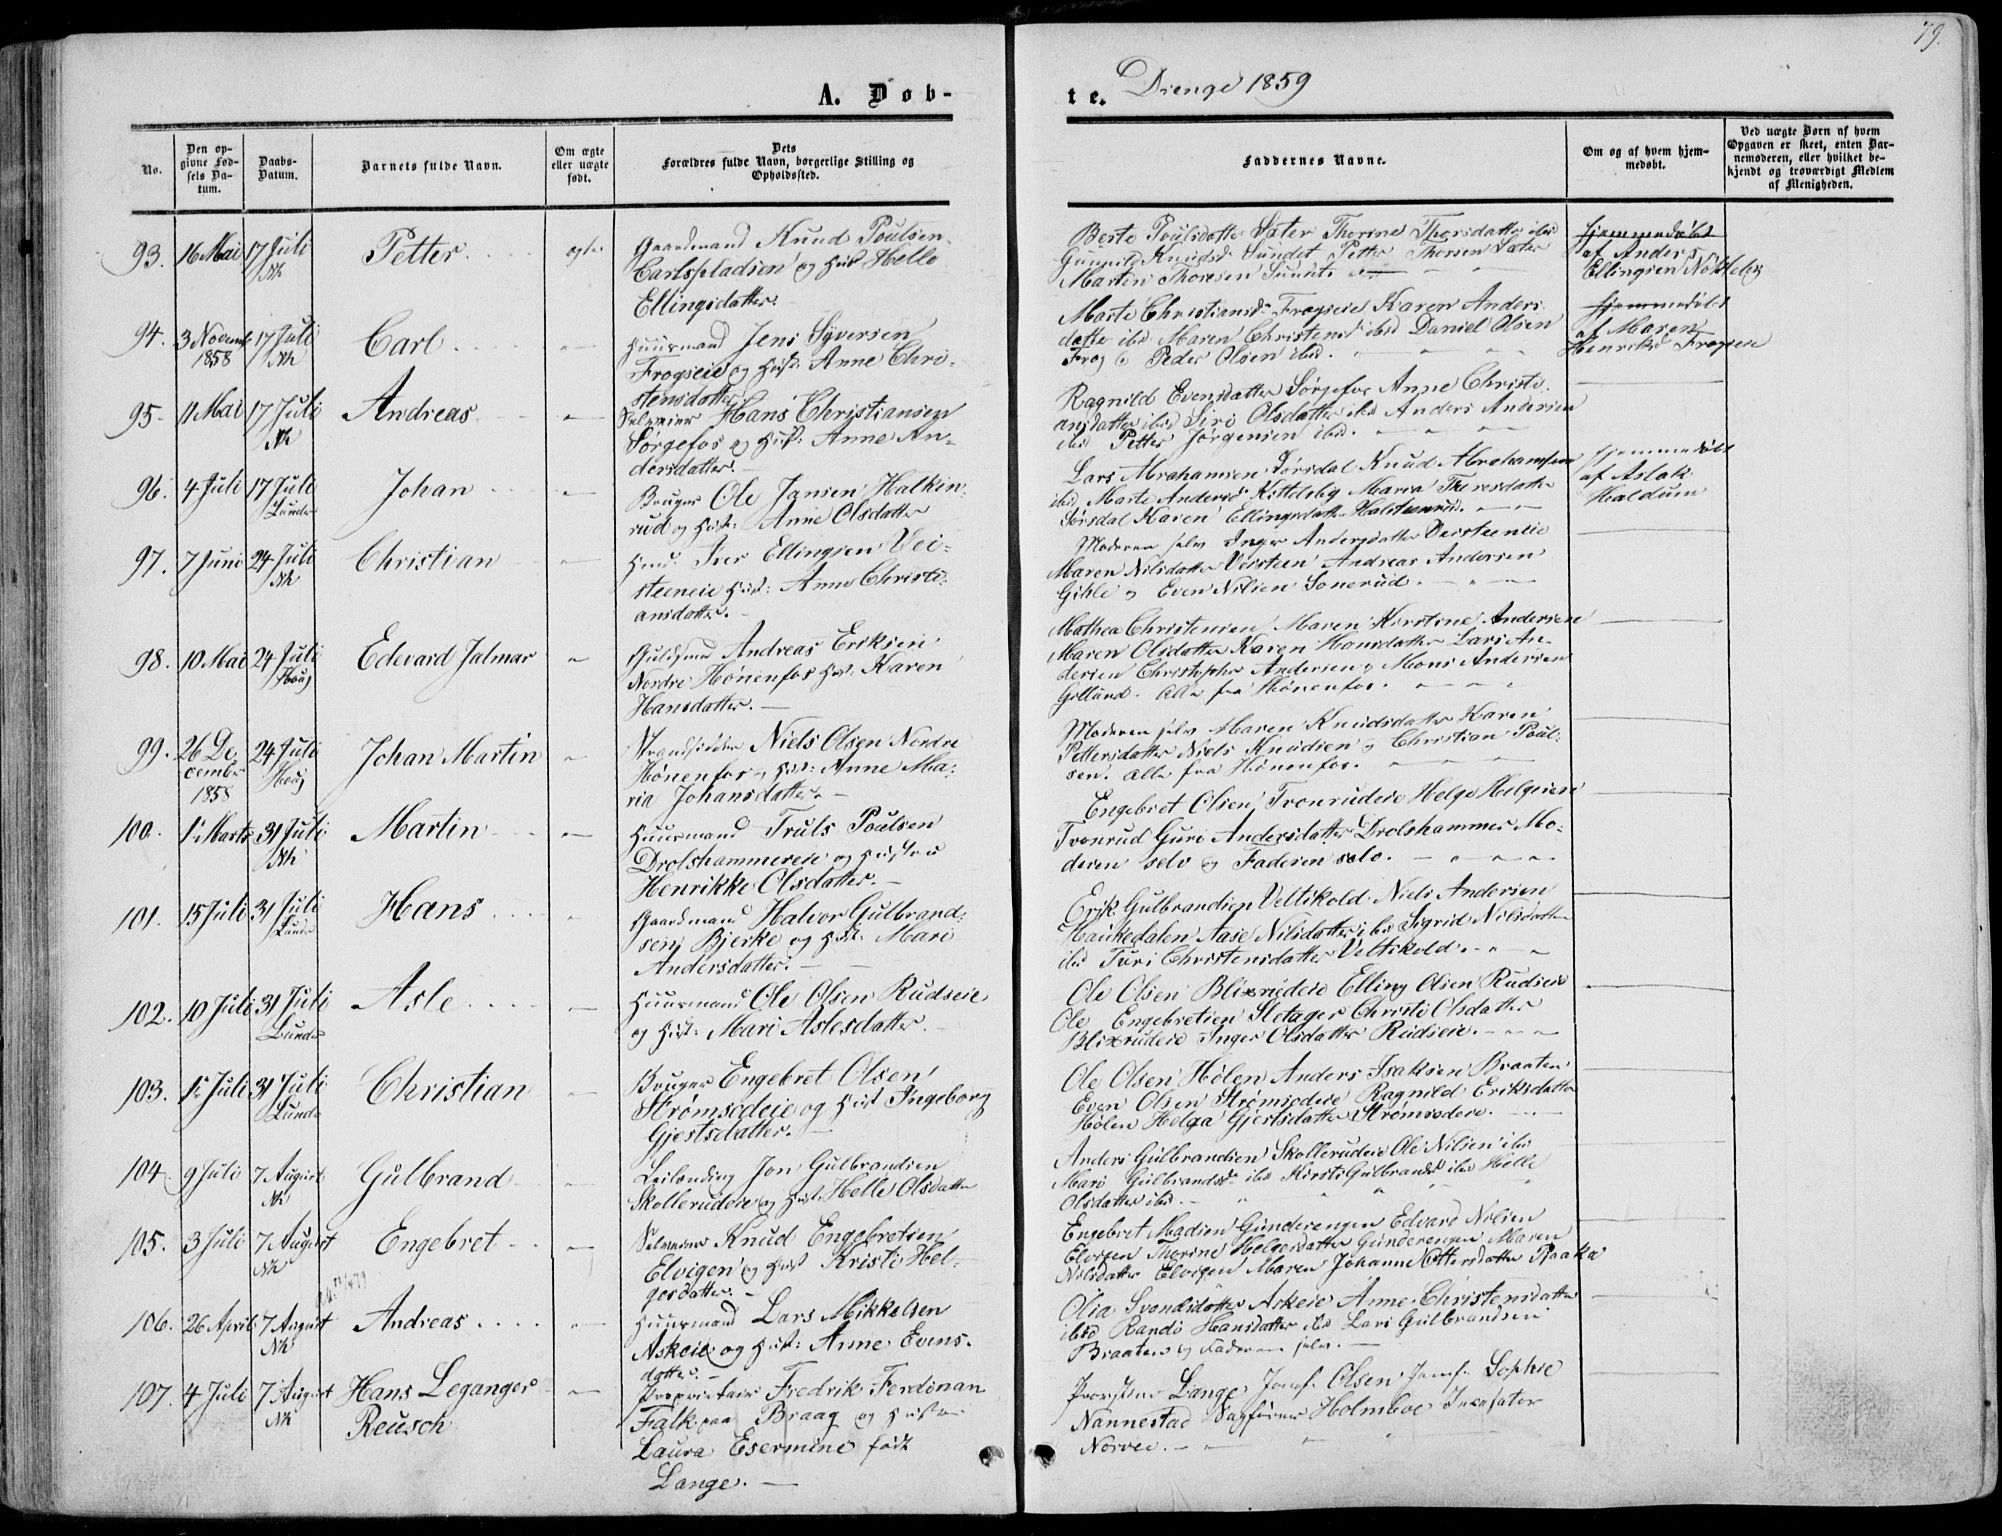 79.
A. Døb-
te. Drenge 1859
No.
Den opgivne Fødsels Datum.
Daabs-Datum.
Barnets fulde Navn.
Om ægte eller uægte født.
Dets Forældres fulde Navn, borgerlige Stilling og Opholdssted.
Faddernes Navne.
Om og af hvem hjemmedøbt.
Ved uægte Børn af hvem Opgaven er skeet, enten Barnemoderen, eller hvilket bekjendt og troværdigt Medlem af Menigheden.
93. 16 Mai 17 Juli Nk Petter ægte
Gaardmand Knud Poulsen
Carlspladsen og Hust Helle
Ellingsdatter.
Berte Poulsdatter Sæter Thorine Thorsdatter ibd
Gunnild Knudsd. Sundet Petter Thorsen Sæter
Martin Thoresen
Hjemmedøbt
af Anders
Ellingsen
94. 3 Novemb 1858 17 Juli Nk Carl
Huusmand Jens Syversen
Frogseie og Hust: Anne Chri-
stensdatter
Marte Christiansd. Frogseie Karen Anders
datter ibd Maren Christensd ibd Daniel Olsen
Frog & Peder Olsen ibd.
Hjemmedøbt
af Maren
Henriksd Frogseie
95. 11 Mai 17 Juli Nk Andreas
Selveier Hans Christiansen
Sørgefos og Hust: Anne An-
dersdatter.
Ragnild Evensdatter Sørgefos Anne Christi-
ansdatter ibd Siri Olsdatter ibd Anders Andersen
ibd Petter Jørgensen ibd.
96. 4 Juli 17 Juli Lunder Johan
Bruger Ole Jansen Halkin-
rud og Hust: Anne Olsdatter
Lars Abrahamsen Sørsdal Knud Abrahamsen
ibd Marte Andersd Maria
Sørsdal Karen Ellingsdatter
Hjemmedøbt
af Aslak
Haldum
97. 7 Juni 24 Juli Nk Christian
Hmd. Iver Ellingsen Vei-
steeneie Hust: Anne Christi-
ansdatter.
Moderen selv Inger Andersdatter Veisteeneie
Maren Nilsdatter Veisteen Andreas Andersen
Gihle og Even Nilsen Sonerud.
98. 10 Mai 24 Juli Houg Edevard Jalmar
Guldsmed Andreas Eriksen
Nordre Hönenfos Hust: Karen
Hansdatter.
Mathea Christensen Maren Kirstine Andersen
Maren Olsdatter Karen Hansdatter Lars An-
dersen Christopher Andersen og Mons Andersen
Gullund. Alle fra Hönenfos.
99. 26 De-
cember
1858 24 Juli Houg Johan Martin
Strandsidder Niels Olsen Nordre
Hönenfos og Hust: Anne Ma-
ria Johansdatter.
Moderen selv Maren Knudsdatter Karen
Pettersdatter Niels Knudsen og Christian Poul-
sen. Alle fra Hönenfos.
100. 1 Marts 31 Juli Nk Martin
Huusmand Truls Poulsen
Drolshammereie og Hustru
Henrikke Olsdatter.
Engebret Olsen Tronrudeie Helge Helgesen
Tronrud Guri Andersdatter Drolshammer Mo-
deren selv og Faderen selv.
101. 15 Juli 31 Juli Lunder Hans
Gaardmand Halvor Gulbrand-
sen Bjerke og Hust: Mari
Andersdatter.
Erik Gulbrandsen Veltikold Niels Andersen
Haukedalen Aase Nilsdatter ibd Sigrid Nilsdatter
ibd Turi Christensdatter Veltikold.
102. 10 Juli 31 Juli Lunder Asle
Huusmand Ole Olsen Rudseie
og Hust: Mari Aslesdatter.
Ole Olsen Blixrudeie Elling Olsen Rudseie
Ole Engebretsen Sletager Christi Olsdatter
Blixrudeie Inger Olsdatter Rudseie.
103. 12 Juli 31 Juli Lunder Christian
Bruger Engebret Olsen
Strømsodeie og Hust Ingeborg
Gjestsdatter.
Ole Olsen Hølen Anders Isaksen Braaten
Even Olsen Strømsodeie Ragnild Eriksdatter
Hølen Helga Gjestsdatter Strømsodeie.
104. 9 Juli 7 August Nk Gulbrand
Leilending Jon Gulbrandsen
Skollerudeie og Hust: Helle Olsdatter
Anders Gulbrandsen Skollerudeie Ole Nilsen ibd
Mari Gulbrandsd ibd Kirsti Gulbrandsd ibd Helle
Olsdatter ibd.
105. 3 Juli 7 August Nk Engebret
Selveier Knud Engebretsen
Elvigen og Hust Kristi Hel-
gesdatter.
Engebret Madsen Gunderengen Edvard Nilsen
Elvigen Thorine Helgesdatter Gunderengen Maren
Nilsdatter Elvigen Maren Johanne Ottersdatter Raaka
106. 26 April 7 August Nk Andreas
Huusmand Lars Mikkelsen
Askeie og Hust: Anne Evens-
datter.
Olia Svendsdatter Askeie Anne Christensdatter
ibd Randi Hansdatter ibd Lars Gulbrandsen
Braaten og Faderen selv.
107. 4 Juli 7 August Nk Hans Leganger
Reusch
Proprietair Fredrik Ferdinan
Falk paa Braag og Hustru
Laura Esermine født
Lange.
Lange, Jomf. Olsen, Jomf. Sophie
Nannestad Sagfører Holmboe
Norvee.